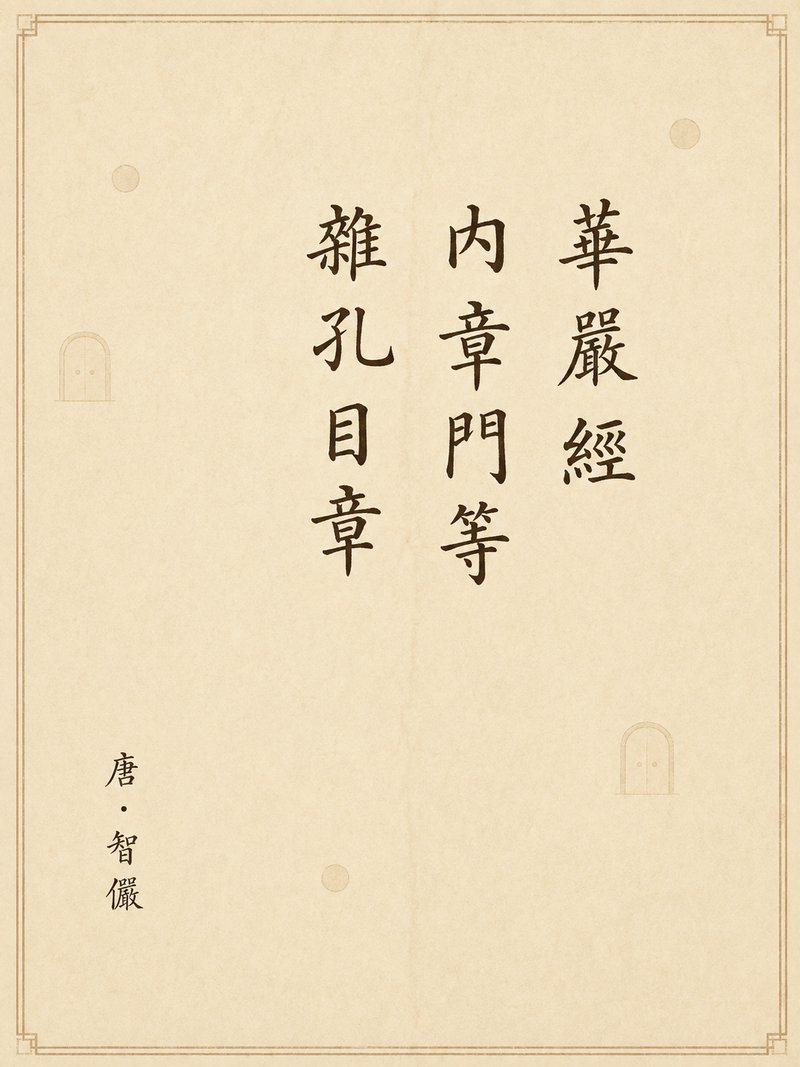 華嚴經
內章門等
雜孔目章
唐・智儼